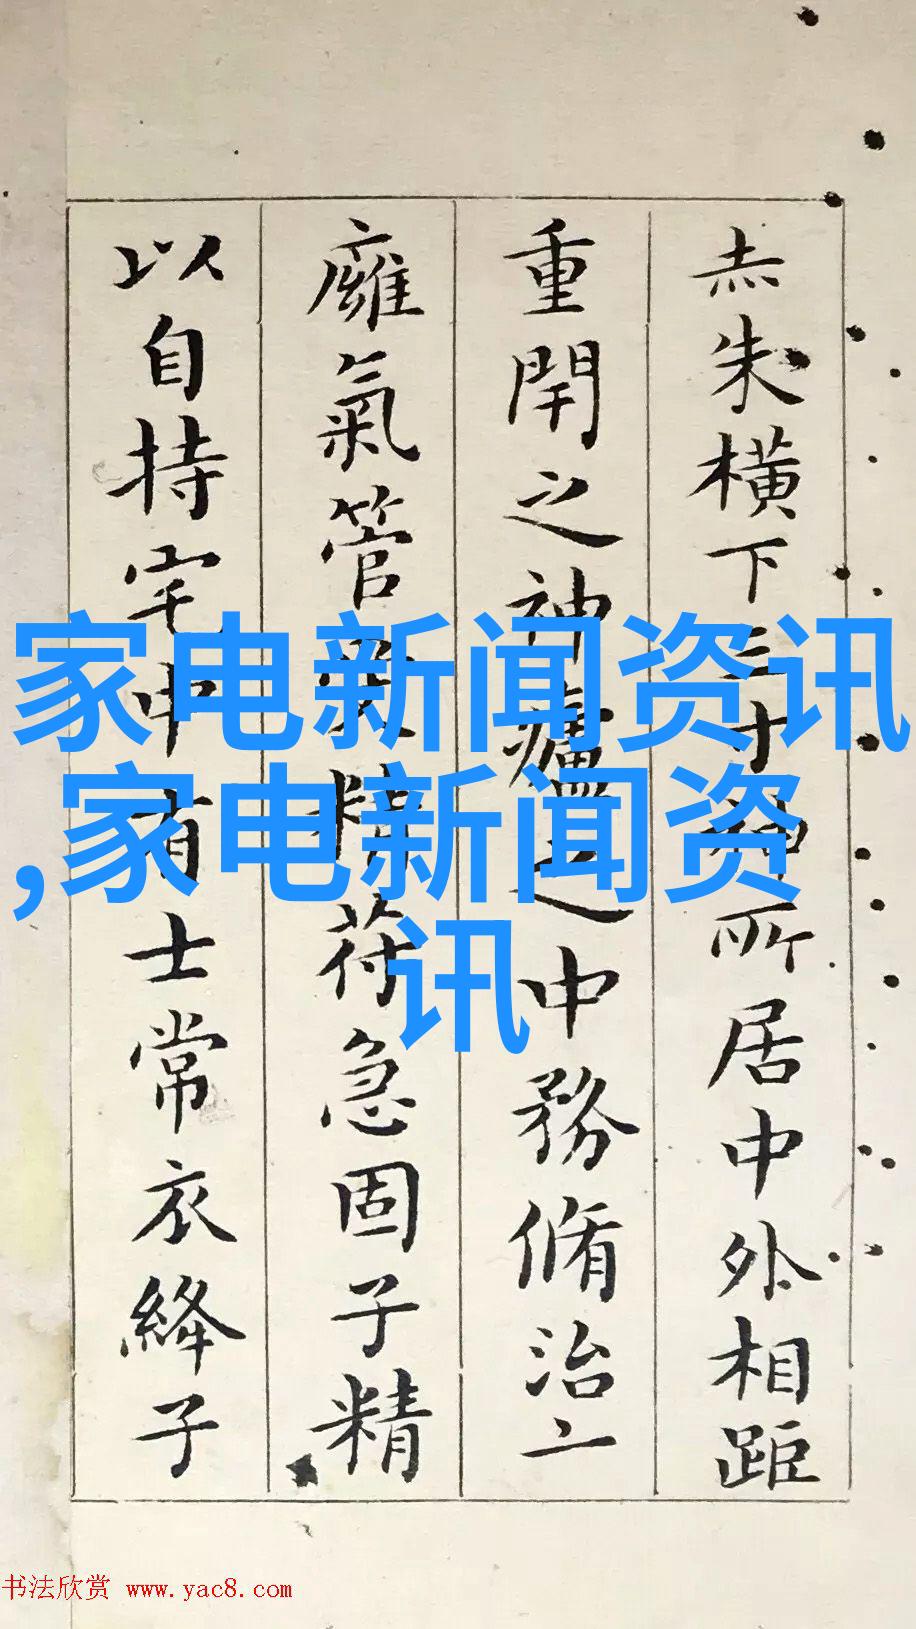 家电新闻资讯
,家电新闻资
讯
赤朱橫下三寸神所居中外相距
重閇之神廬之中務脩治
廱氣管受精苻急固子精
以自持宅中有士常衣絳子
书法欣赏 www.yac8.com